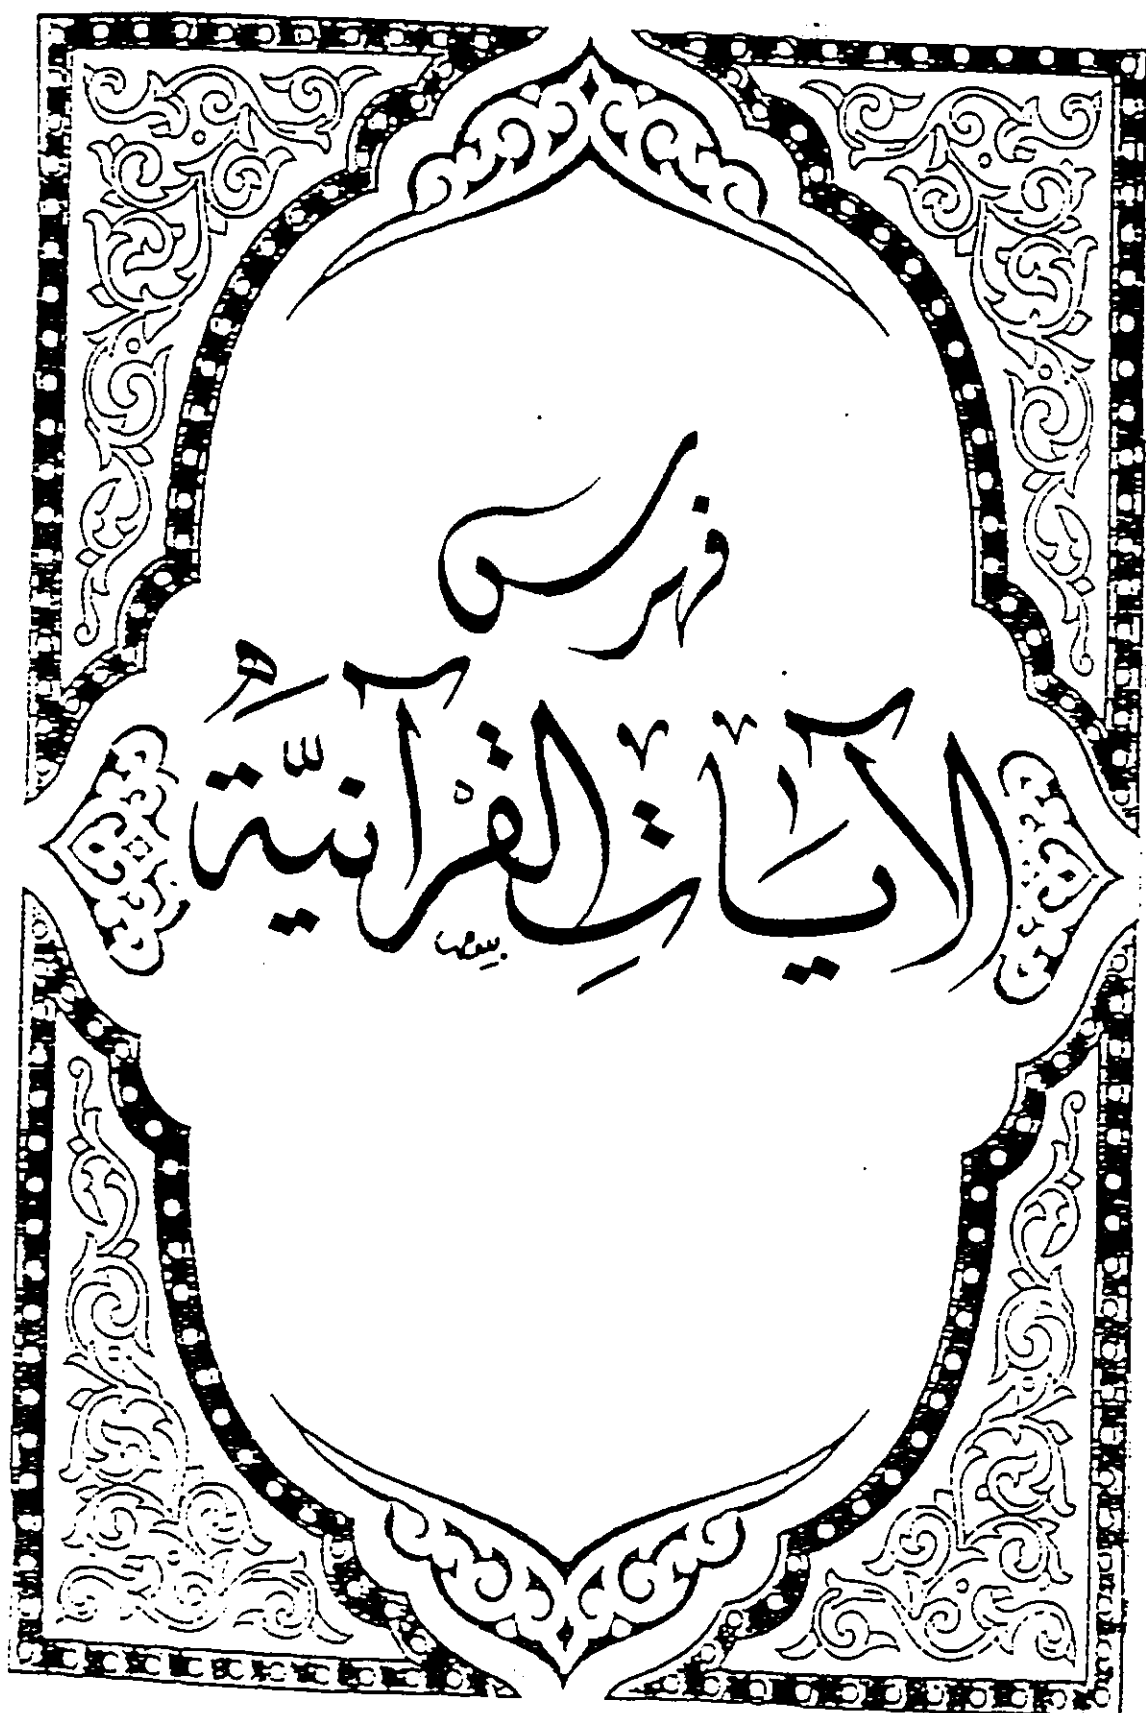 فهرس
الآيَاتِ القرآنيَّة